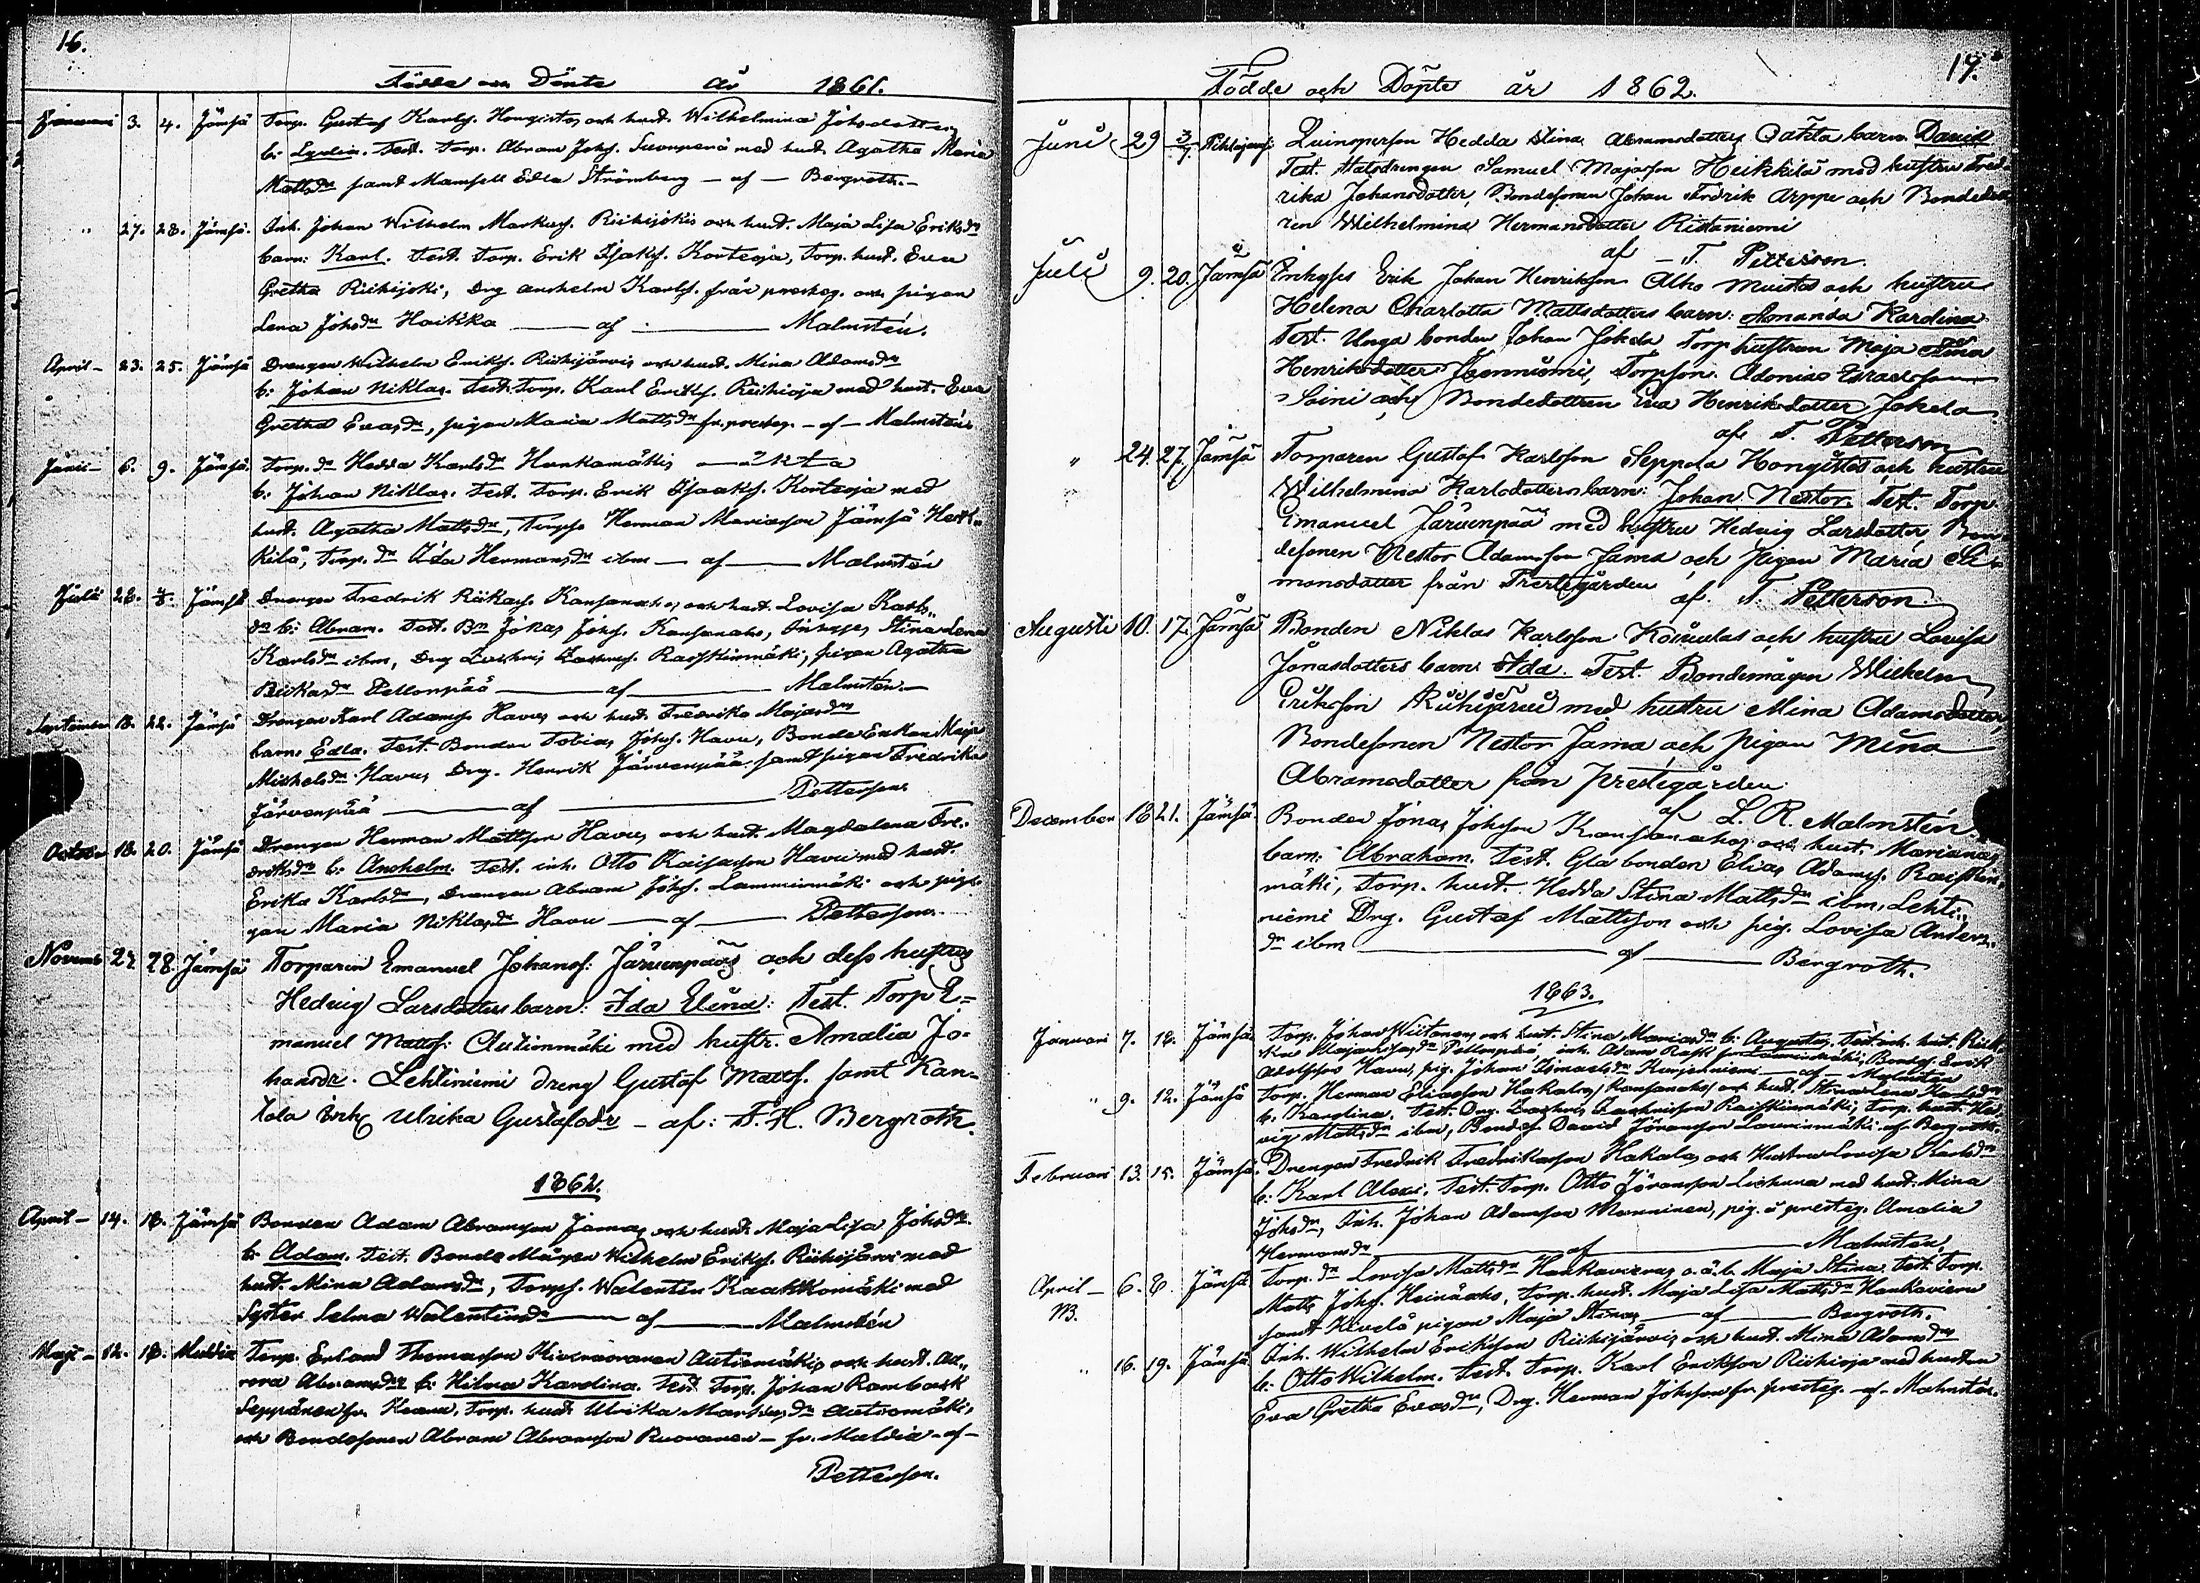 16.
Födde och Döpte år 1861.
Januari 3. 4. Jämsä Torp. Gustaf Karlss. Hongistos och hust. Wilhelmina Johsdotters
b: Lydia. Test. Torp. Abram Johss. Suonperä med hust. Agatha Maria
Mattsdr samt Mamsell Edla Strömberg — af — Bergroth.—
" 27. 28. Jämsä. Inh. Johan Wilhelm Markuss. Riihijokis och hust. Maja Lisa Eriksdrs
barn: Karl. Test. Torp. Erik Isakss. Korteoja, Torp. hust. Eva
Gretha Riihijoki, Drg Anshelm Karlss. från prosteg. och pigan
Lena Johsdr Hoikka — af — Malmstén.
April — 23. 25. Jämsä Drengen Wilhelm Erikss. Riihijärvis och hust. Mina Adamsdrs
b: Johan Niklas. Test. Torp. Karl Erikss. Riihioja med hust. Eva
Gretha Evasdr, pigan Maria Mattsdr fr. prosteg. — af — Malmstén
Juni — 6. 9. Jämsä. Torp. dr Hedda Karlsdr Honkamäkis — oäkta
b: Johan Niklas. Test. Torp. Erik Isaakss. Korteoja med
hust. Agatha Mattsdr, Torpss Herman Mariasson Jämsä Heik-
kilä, Torp. dr Ida Hermansdr ibm — af — Malmstén
Juli 28. 4/8. Jämsä Drengen Fredrik Kansanahos och hust. Lovisa Karls-
drs b: Abram. Test. Bn Jonas Johss. Kansanaho, Stina Lena
Karlsdr ibm, Drg Zachris Zachriss. Raiskinmäki, pigan Agatha
Pellonpää — af — Malmstén.—
September 18. 22. Jämsä Drengen Karl Adamss. Havus och hust. Fredrika Majasdrs
barn: Edla. Test. Bonden Tobias Johss. Havu, Bonde Enkan Maja
Michelsdr Havu, Drg. Henrik Järvenpää samt pigan Fredrika
Järvenpää — af — Petterson
October 18. 20. Jämsä Drengen Herman Mattsson Havus och hust. Magdalena Fre-
driksdrs b: Anshelm. Test. inh. Otto Kaisasson Havu med hust.
Erika Karlsdr, Drengen Abram Johss. Lamminmäki och pi-
gan Maria Niklasdr Havu — af — Petterson.
Novemb 27. 28. Jämsä Torparen Emanuel Johanss: Järvenpääs och dess hustrus
Hedvig Larsdotters barn: Ida Elina: Test. Torp E-
manuel Mattss: Autionmäki med hustr. Amalia Jo-
hansdr. Lehtiniemi dreng Gustaf Mattss. samt Kan-
tola Enk Ulrika Gustafsdr — af: F. H. Bergroth.
1862.
April — 14. 18. Jämsä Bonden Adam Abramsson Jämäs och hust. Maja Lisa Johsdrs
b: Adam. Test. Bonde Mågen Wilhelm Erikss. Riihijärvi med
hust. Mina Adamsdr, Torpss. Walentin Kaakkomäki med
Syster Selma Walentinsdr — af — Malmstén
Maji — 12. 18. Muldia Torp. Erland Thomasson Autiomäkis och hust. Au-
rora Abramsdrs b: Hilma Karolina. Test. Torp. Johan Rambask
Seppänen fr. Keuru, Torp. hust. Ulrika Markusdr Autiomäki,
och Bondesonen Abram Abramsson Ruovanen — fr. Muldia — af —
Petterson.
17.
Födde och Döpte år 1862.
Juni 29 3/7. Pihlajavesi Qvinsperson Hedda Stina Abramsdotters Oäkta barn David
Test. Statsdrengen Samuel Majasson Heikkilä med hustru Fred-
rika Johansdotter, Bondesonen Johan Fredrik Arppe och Bondedott-
ren Wilhelmina Hermansdotter Ristaniemi
af — T. Petterson.
Juli 9. 20. Jämsä Erik Johan Henriksson Alho och hustru
Helena Charlotta Mattsdotters barn: Amanda Karolina
Test. Unga bonden Johan Jokela Torp hustrun Maja Stina
Henriksdotter Torpson. Adonias
Soini och Bondedottren Eva Henriksdotter Jokela
af. T. Petterson
" 24. 27. Jämsä Torparen Gustaf Karlsson Seppola Hongistos och hustru
Wilhelmina Karlsdotters barn: Johan Nestor. Test. Torp
Emanuel Järvenpää med hustru Hedvig Larsdotter, Bon-
desonen Nestor Adamsson Jämä och Pigan Maria Si-
monsdotter från Prestegården af. T. Petterson.
Augusti 10. 17. Jämsä Bonden Niklas Karlsson och hustru Lovisa
Jonasdotters barn: Ida. Test. Bondemågen Wilhelm
Eriksson Riihijärvi med hustru Mina Adamsdotter,
Bondesonen Nestor Jämä och pigan Mina
Abramsdotter från Prestegården.
af L. R. Malmstén.
December 18 21. Jämsä. Bonden Jonas Johsson Kansanahos och hust. Marianas
barn: Abraham. Test. Gla bonden Elias Adamss. Raiskin-
mäki, Torp. hust. Hedda Stina Mattsdr ibm, Lehti-
niemi Drg. Gustaf Mattsson och pig. Lovisa Anders-
dr ibm — af — Bergroth.
1863.
Januari 7. 12. Jämsä Torp. Johan Wiitanens och hust. Stina Mariasdrs b: Augustus. Test. inh. hust.
Pellonpää, inh. Adam Rask fr Lamminmäki, Bondes. Erik
Adolfsson Havu, pig. Johan — af — Malmstén
" 9. 12. Jämsä Torp. Herman Eliasson Hakalas Kansanahos och hust. Stina Lena Karlsdrs
b. Karolina. Test. Drg. Zachris Zachrisson Raiskinmäki, Torp. hust. Hed-
vig Mattsdr ibm, Bondes. David Göransson Lamminmäki af Bergroth.
Februari 13. 15. Jämsä. Drengen Fredrik Fredriksson Hakalas och Hustru Lovisa Karlsdrs
b: Karl Alexi. Test. Torp. Otto Göransson med hust. Mina
Johsdr, Inh. Johan Adamsson Manninen, pig. i presteg. Amalia
Hermansdr — af — Malmstén.
April — 6. 8. Jämsä. Torp. dr Lovisa Mattsdr Honkavieris o.ä.b. Maja Stina. Test. Torp.
M. Matts Johss. Heinäaho, Torp. hust. Maja Lisa Mattsdr Honkavieru
samt pigan Maja Stina — af — Bergroth.
" 16. 19. Jämsä Inh. Wilhelm Eriksson Riihijärvis och hust. Mina Adamsdrs
b: Otto Wilhelm. Test. Torp. Karl Eriksson Riihioja med hustru
Eva Gretha Evasdr, Drg. Herman Johsson fr. presteg. — af — Malmstén.